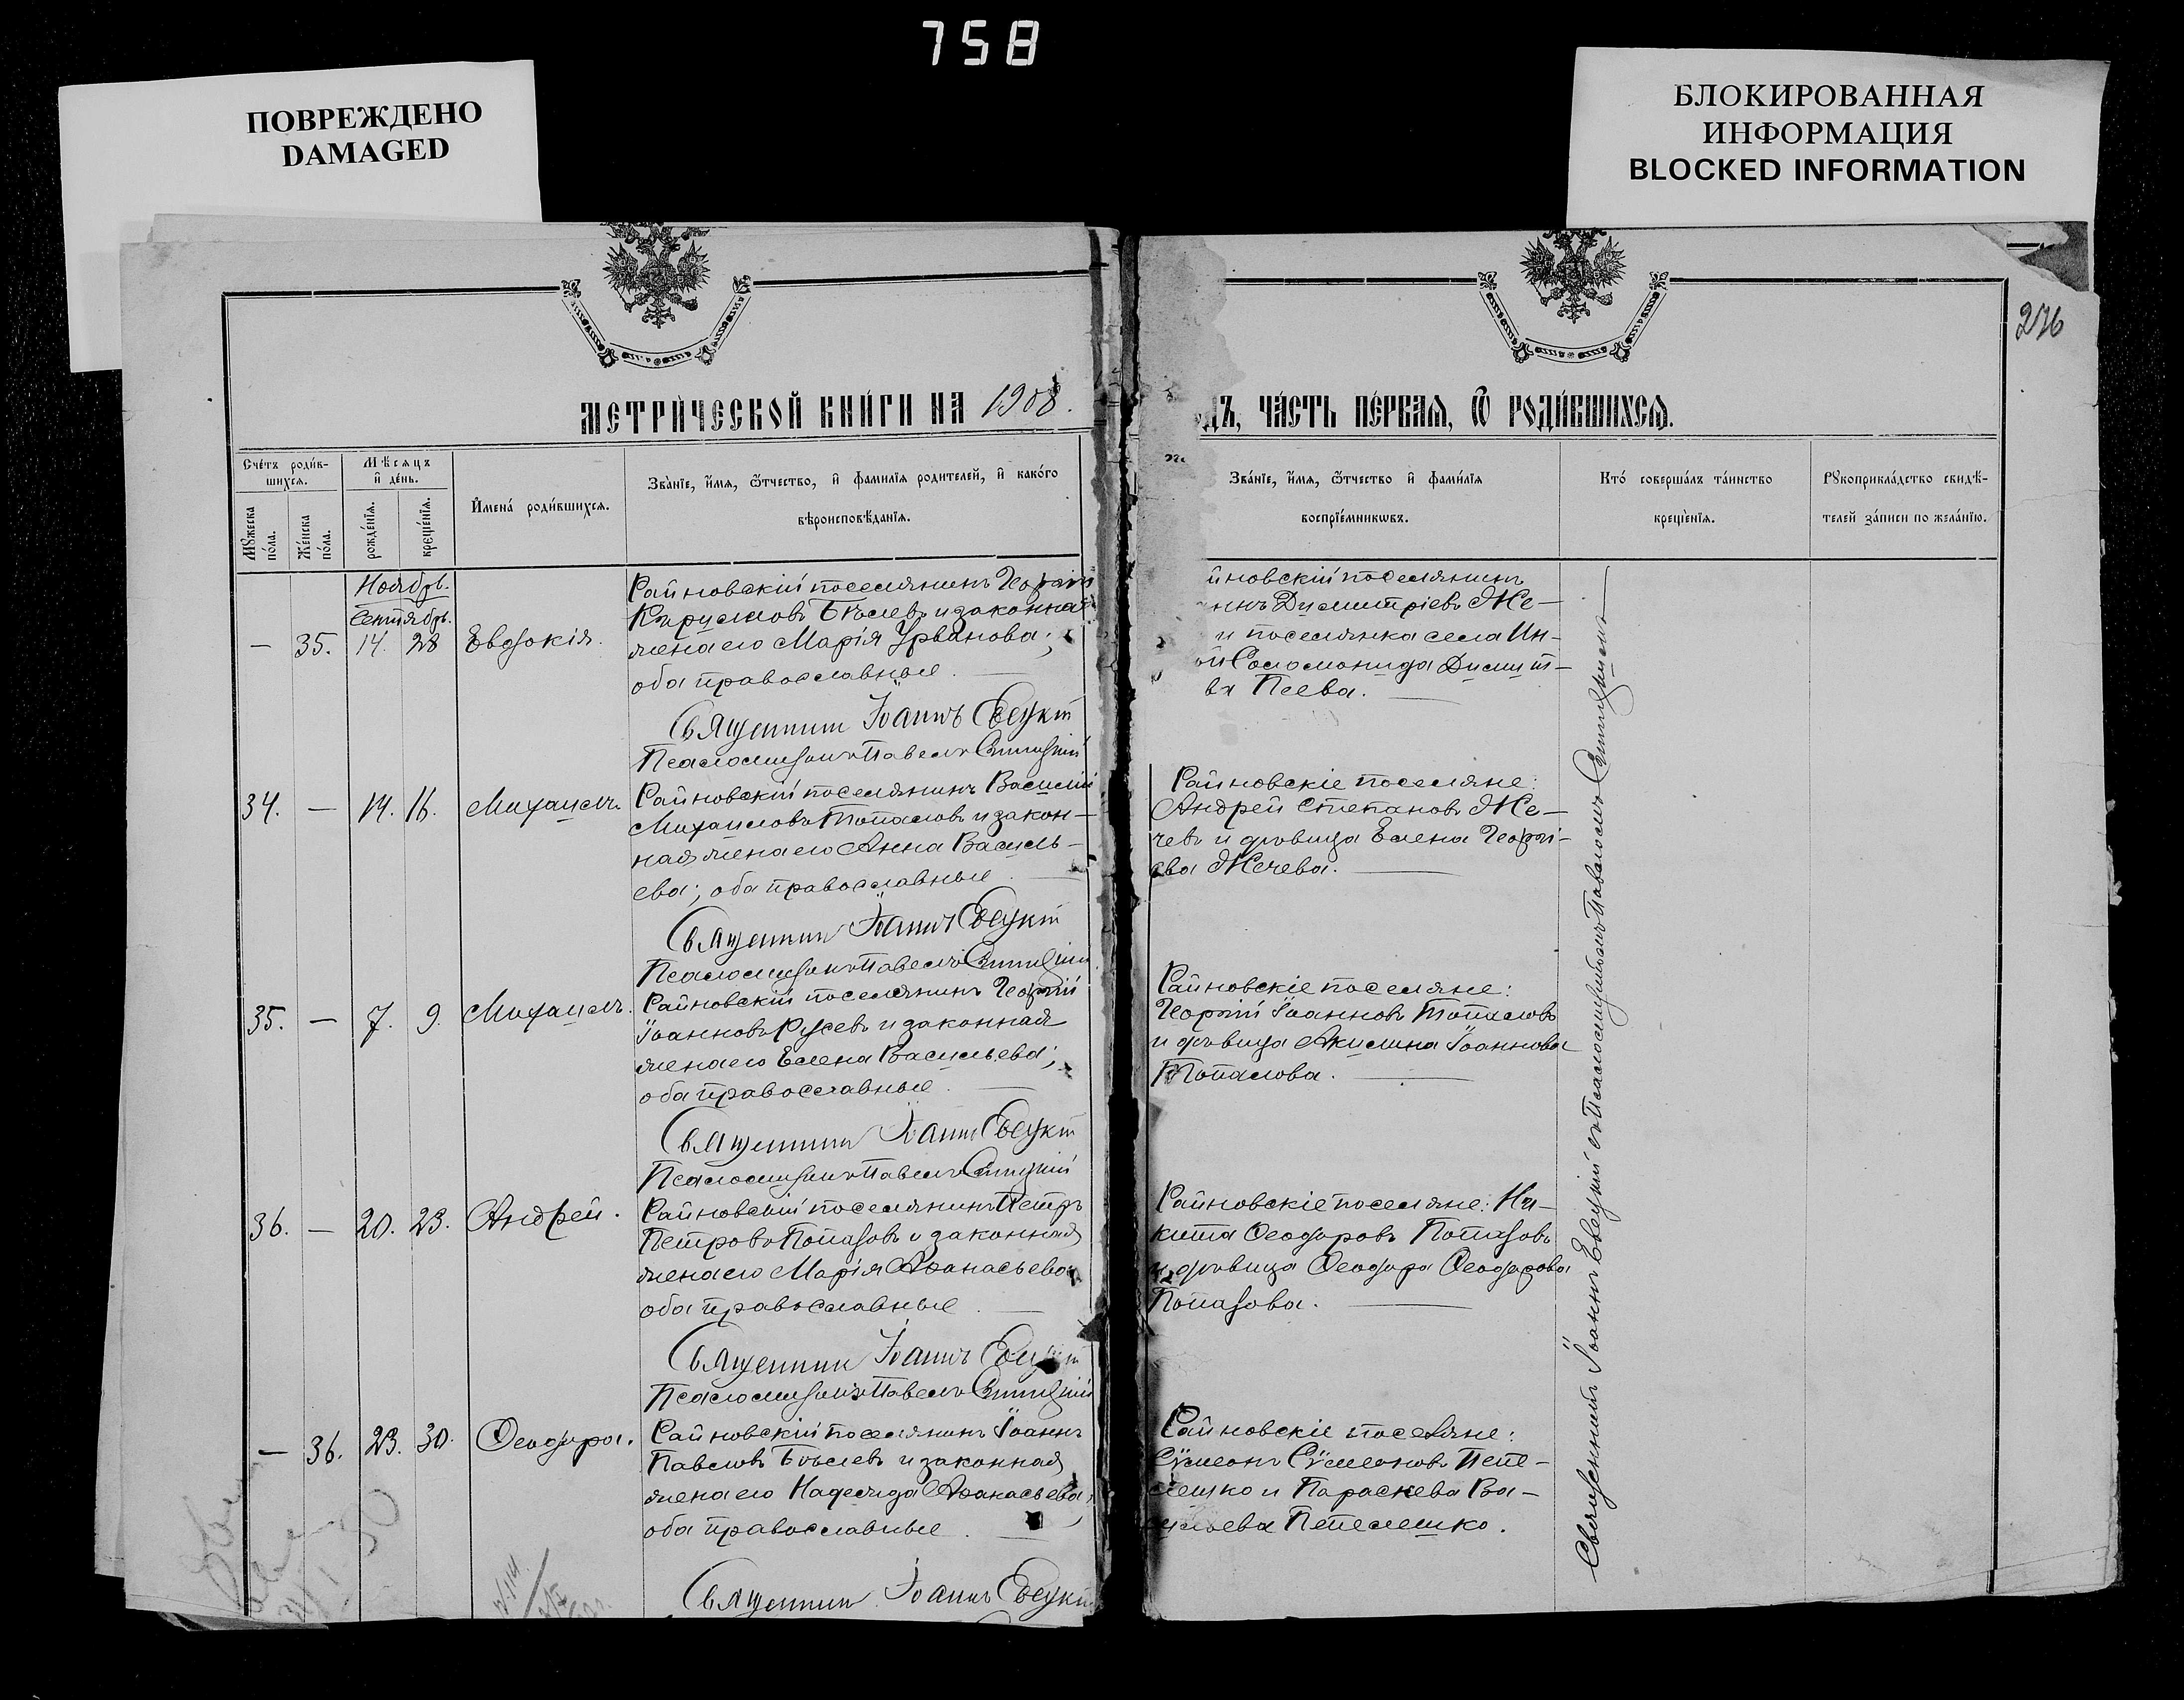 758
ПОВРЕЖДЕНО
DAMAGED
БЛОКИРОВАННАЯ
ИНФОРМАЦИЯ
BLOCKED INFORMATION
276
МЕТРИ́ЧЕСКОЙ КНИ́ГИ НА 1908.
ДЪ, ЧА́СТЬ ПЕ́РВАѦ, Ѿ РОДИ́ВШИХСѦ.
Сче́тъ роди́в-
шихсѧ.
Мꙋжеска
по́ла.
Же́нска
по́ла.
Мѣ́сѧцъ
и҆ де́нь.
рожде́нїѧ.
креще́нїѧ.
И҆мена́ роди́вшихсѧ.
Зва́нїе, и҆́мѧ, ѻ҆́тчество, и҆ фами́лїѧ роди́телей, и҆ како́го
вѣроисповѣ́данїѧ.
Зва́нїе, и҆́мѧ, ѻ҆́тчество и҆ фами́лїѧ
воспрїе́мникѡвъ.
Кто́ соверша́лъ та́инство
креще́нїѧ.
Рꙋкоприкла́дство свидѣ́-
телей за́писи по жела́нїю.
Ноябрь.
Сентябрь.
— 35. 14. 28 Евдокія.
Райновскій поселянинъ Георгій
Кирилловъ Бѣлевъ и законная
жена его Марія Урванова;
оба православные.
Священникъ Іоаннъ Евецкій
Псаломщикъ Павелъ Синицкій
йновскій поселянинъ
ннъ Димитріевъ Же-
и поселянка села Ин-
ой Соломонида Димит-
ва Пеева.
34. — 14. 16. Михаилъ.
Райновскій поселянинъ Василій
Михаиловъ Топаловъ и закон-
ная жена его Анна Василь-
ева; оба православные.
Священникъ Іоаннъ Евецкій
Псаломщикъ Павелъ Синицкій
Райновскіе поселяне:
Андрей Степановъ Же-
чевъ и дѣвица Елена Георгі-
ева Жечева.
35. — 7. 9. Михаилъ.
Райновскій поселянинъ Георгій
Іоанновъ Русевъ и законная
жена его Елена Васильева;
оба православные.
Священникъ Іоаннъ Евецкій
Псаломщикъ Павелъ Синицкій
Райновскіе поселяне:
Георгій Іоанновъ Топаловъ
и дѣвица Акилина Іоаннова
Топалова.
36. — 20. 23. Андрей.
Райновскій поселянинъ Петръ
Петровъ Попазовъ и законная
жена его Марія Аѳанасьева
оба православные.
Священникъ Іоаннъ Евецкій
Псаломщикъ Павелъ Синицкій
Райновскіе поселяне: Ни-
кита Ѳеодоровъ Попазовъ
и дѣвица Ѳеодора Ѳеодорова
Попазова.
— 36. 23. 30. Ѳеодора.
Райновскій поселянинъ Іоаннъ
Павловъ Бѣлевъ и законная
жена его Надежда Аѳанасьева;
оба православные.
Священникъ Іоаннъ Евецкій
Райновскіе поселяне:
Сѷмеонъ Сѷмеоновъ Пепе-
лешко и Параскева Ва-
сильева Пепелешко.
Священникъ Іоаннъ Евецкій съ Псаломщикомъ Павломъ Синицкимъ